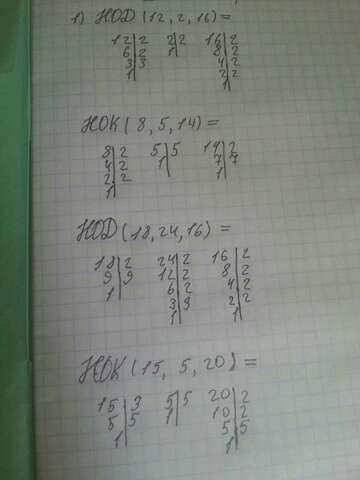 1) НОД (12, 2, 16) =
12 | 2   2 | 2   16 | 2
6 | 2   1 |   8 | 2
3 | 3   4 | 2
1 |   2 | 2
1 |
НОК ( 8, 5, 14) =
8 | 2   5 | 5   14 | 2
4 | 2   1 |   7 | 7
2 | 2   1 |
1 |
НОД (18, 24, 16) =
18 | 2   24 | 2   16 | 2
9 | 9   12 | 2   8 | 2
1 |   6 | 2   4 | 2
3 | 3   2 | 2
1 |   1 |
НОК (15, 5, 20) =
15 | 3   5 | 5   20 | 2
5 | 5   1 |   10 | 2
1 |   5 | 5
1 |